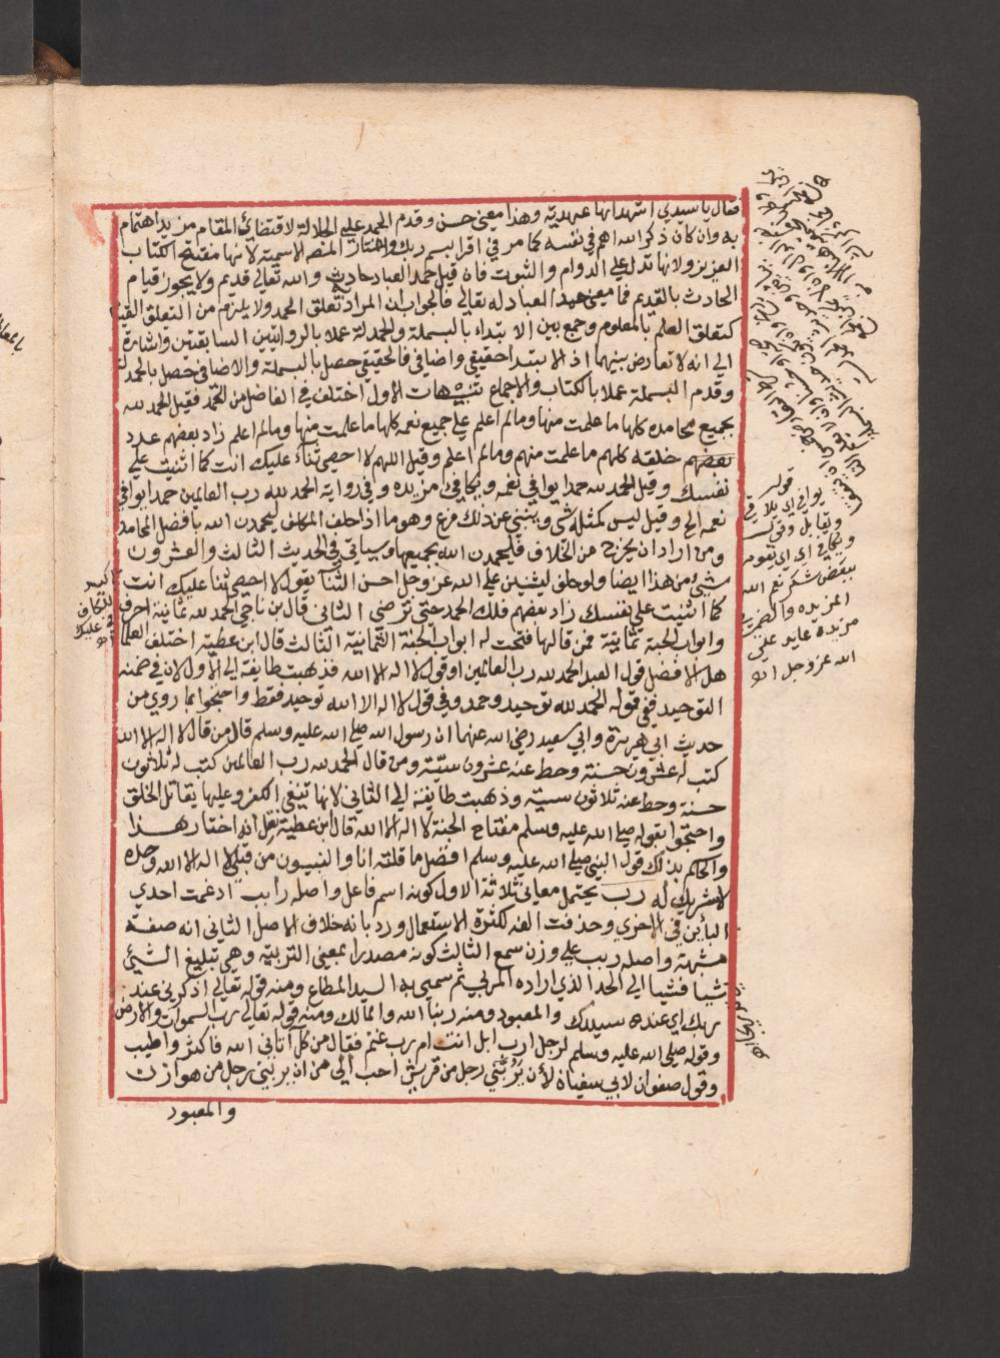 فقال يا سيدي اشهد انها عهدية وهذا معنى حسن وقدم الحمد على الجلالة لاقتضائي المقام مزيد اهتمام
به وان كان ذكر الله اهم في نفسه كما مر في اقرا بسم ربك واختار المصـ الاسمية لانها مفتتح الكتاب
العزيز ولانها تدل على الدوام والثبوت فان قيل حمد العباد حادث والله تعالى قديم ولا يجوز قيام
الحادث بالقديم فما معنى حمد العباد له تعالى فالجواب ان المراد تعلق الحمد ولا يلزم من التعلق القيا
كتعلق العلم بالمعلوم وجمع بين الابتداء بالبسملة والحمدلة عملا بالروايتين السابقتين واشارة
الى انه لا تعارض بينهما اذ الابتدا حقيقي واضافي فالحقيقي حصل بالبسملة والاضافي حصل بالحمدلة
وقدم البسملة عملا بالكتاب والاجماع تنبيهات الاول اختلف في الفاضل من الحمد فقيل الحمد لله
بجميع محامده كلها ما علمت منها وما لم اعلم على جميع نعمه كلها ما علمت منها وما لم اعلم زاد بعضهم عدد
خلقه كلهم ما علمت منهم وما لم اعلم وقيل اللهم لا احصي ثناء عليك انت كما اثنيت على
نفسك وقيل الحمد لله حمدا يوافي نعمه ويكافئ مزيده وفي رواية الحمد لله رب العالمين حمدا يوافي
نعمه الخ وقيل ليس كمثله شي وينبني عن ذلك فرع وهو ما اذا حلف المكلف ليحمدن الله بافضل المحامد
ومن اراد ان يخرج من الخلاف فليحمدن الله بجميعها وسياتي في الحديث الثالث والعشرون
شيئ من هذا ايضا ولو حلف ليثنين على الله عز وجل احسن الثنا يقول لا احصي ثنا عليك انت
كما اثنيت على نفسك زاد بعضهم فلك الحمد حتى ترضى الثاني قال بن ناجي الحمد لله ثمانية احرف
وابواب الجنة ثمانية فمن قالها فتحت له ابواب الجنة الثمانية الثالث قال ابن عطية اختلف العلما
هل الافضل قول العبد الحمد لله رب العالمين او قول لا اله الا الله فذهبت طايفة الى الاول لان في ضمنه
التوحيد ففي قوله الحمد لله توحيد وحمد وفي قول لا اله الا الله توحيد فقط واحتجوا بما روي من
حديث ابي هريرة وابي سعيد رضي الله عنهما ان رسول الله صلى الله عليه وسلم قال من قال لا اله الا الله
كتب له عشرون حسنة وحط عنه عشرون سيئة ومن قال الحمد لله رب العالمين كتب له ثلاثون
حسنة وحط عنه ثلاثون سيئة وذهبت طايفة الى الثاني لانها تنفي الكفر وعليها يقاتل الخلق
واحتجوا بقوله صلى الله عليه وسلم مفتاح الجنة لا اله الا الله قال ابن عطية نقل انه اختار هذا
والحاكم بذلك قول النبي صلى الله عليه وسلم افضل ما قلته انا والنبيون من قبلي لا اله الا الله وحده
لا شريك له رب يحتمل معاني ثلاثة الاول كونه اسم فاعل واصله رابب ادغمت احدى
البائين في الاخرى وحذفت الفه لكثرة الاستعمال ورد بانه خلاف الاصل الثاني انه صفة
مشبهة واصله ربب على وزن سمع الثالث كونه مصدرا بمعنى التربية وهي تبليغ الشئ
شيا فشيا الى الحد الذي اراده المربي ثم سمي به السيد المطاع ومنه قوله تعالى اذكرني عند
ربك اي عند سيدك والمعبود ومنه ربنا الله والمالك ومنه قوله تعالى رب السموات والارض
وقوله صلى الله عليه وسلم لرجل ارب ابل انت ام رب غنم فقال من كل اتاني الله فاكثر واطيب
وقول صفوان لابي سفيان لأن يربني رجل من قريش احب الي من ان يربني رجل من هوازن
والمعبود
قوله
يوافي اي يلاقي
ويقابل وقوله
ويكافئ اي يقوم
ببعض شكر نعم الله
المزيده والضمير في
مزيده عايد على
الله عز وجل